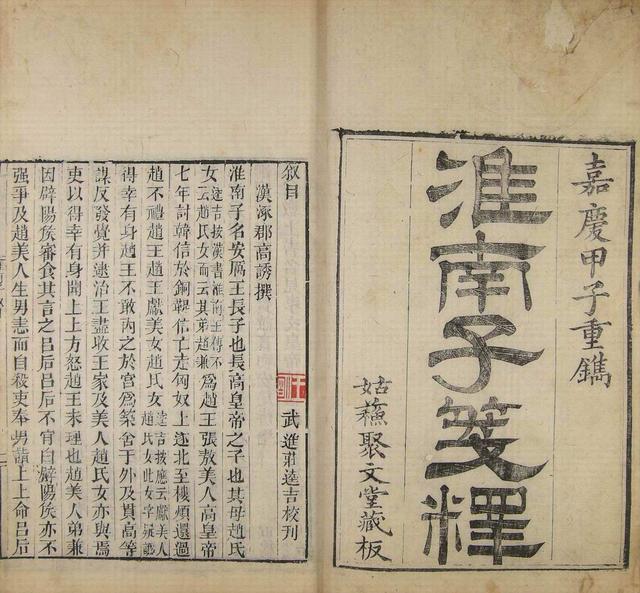 嘉慶甲子重鐫
淮南子箋釋
姑蘓聚文堂藏板
叙目
漢涿郡高誘撰 武進莊逵吉校刊
淮南子名安厲王長子也長高皇帝之子也其母趙氏
女逵吉按漢書淮南王傳不云趙氏女而云其弟趙兼爲趙王張敖美人高皇帝
七年討韓信於銅鞮信亡走匈奴上遂北至樓煩還過
趙不禮趙王趙王獻美女趙氏女逵吉按應云獻美人趙氏女此女字疑譌
得幸有身趙王不敢内之於宮爲築舍于外及貫高等
謀反發覺并逮治王盡收王家及美人趙氏女亦與焉
吏以得幸有身聞上上方怒趙王未理也趙美人弟兼
因辟陽矦審食其言之呂后呂后不肯白辟陽矦亦不
强爭及趙美人生男恚而自殺吏奉男詣上上命呂后